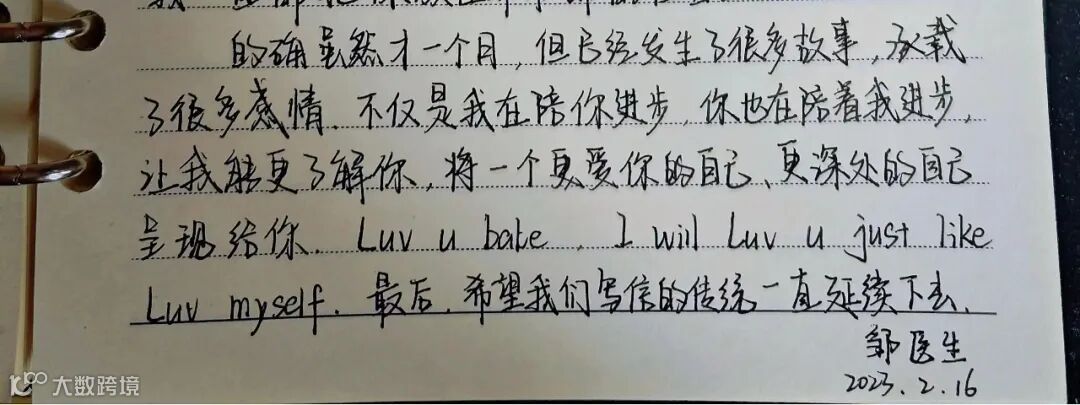 的确虽然才一个月,但已经发生了很多故事,承载
了很多感情.不仅是我在陪你进步,你也在陪着我进步,
让我能更了解你,将一个更爱你的自己、更深处的自己
呈现给你. Luv u babe. I will Luv u just like
Luv myself. 最后.希望我们写信的传统一直延续下去.
邹医生
2023.2.16
大数跨境